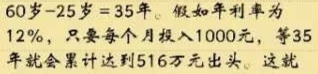 60岁-25岁=35年。假如年利率为
12%，只要每个月投入1000元，等35
年就会累计达到516万元出头。这就